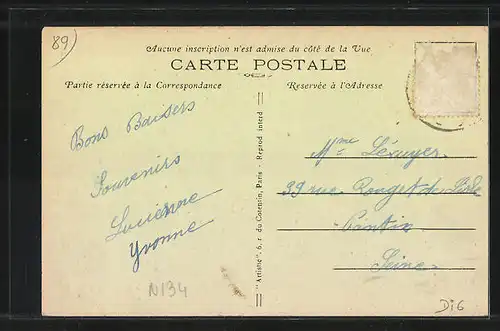 89
Aucune inscription n'est admise du côté de la Vue
CARTE POSTALE
Partie réservée à la Correspondance
Réservée à l'Adresse
Bons Baisers
Souvenirs
Lucienne
Yvonne
"Artistic" 6, r. du Cotentin, Paris - Reprod interd
Mme Lécuyer
39 rue Rouget de Lisle
Pantin
Seine
N134
Di6